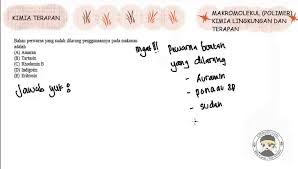 KIMIA TERAPAN
MAKROMOLEKUL (POLIMER)
KIMIA LINGKUNGAN DAN
TERAPAN
Bahan pewarna yang sudah dilarang penggunaannya pada makanan
adalah
(A) Amaran
(B) Tartrazin
(C) Rhodamin B
(D) Indigotin
(E) Eritrosin
Jawab yuk :
inget!! Pewarna buatan
yang dilarang
- Auramin
- ponceau SP
- sudan
-